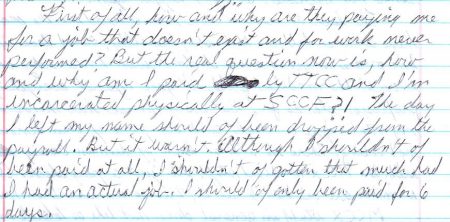 First of all, how and why are they paying me
for a job that doesn't exist and for work never
performed? But the real question now is, how
and why am I paid by TTCC and I'm
incarcerated physically at SCCF?! The day
I left my name should of been dropped from the
payroll. But it wasn't. Although I shouldn't of
been paid at all, I shouldn't of gotten that much had
I had an actual job. I should of only been paid for 6
days.